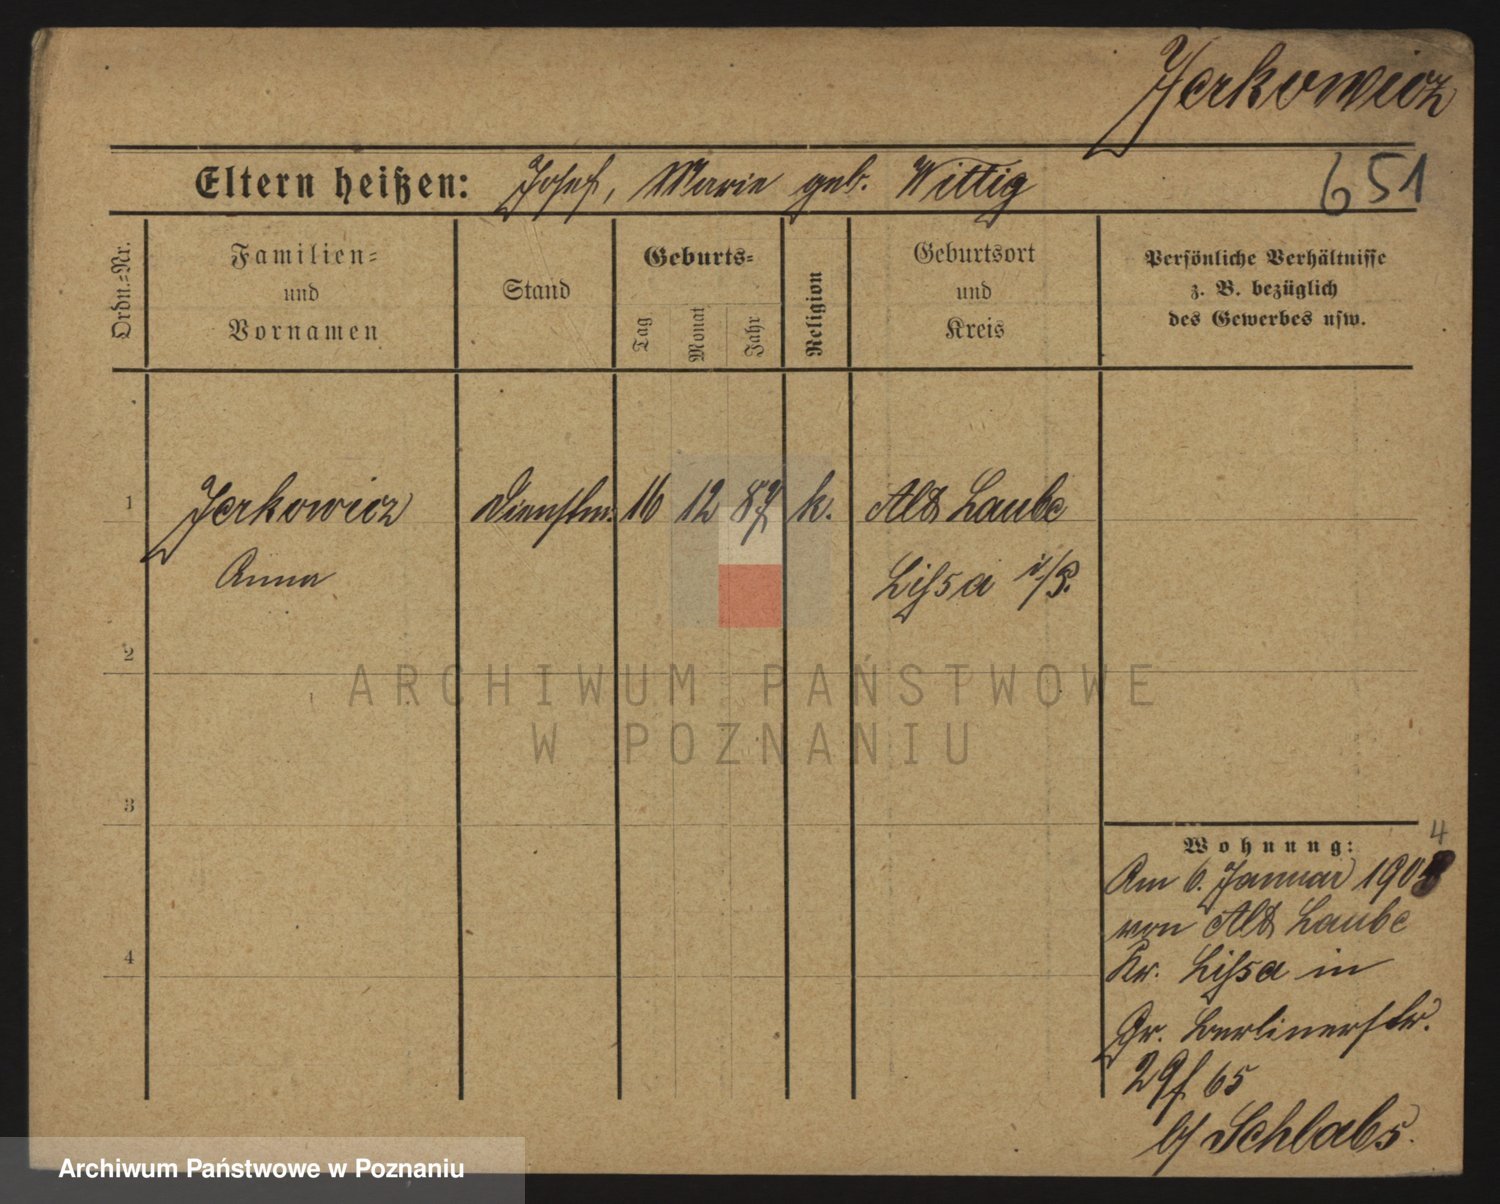 Jerkowicz
Eltern heißen: Josef, Marie geb. Wittig
651
Ordn.=Nr.
Familien=
und
Vornamen
Stand
Geburts=
Tag
Monat
Jahr
Religion
Geburtsort
und
Kreis
Persönliche Verhältnisse
z. B. bezüglich
des Gewerbes usw.
1
Jerkowicz
Anna
Dienstm.
16
12
87
k.
Alt Laube
Lissa i/P.
2
3
4
ARCHIWUM PAŃSTWOWE
W POZNANIU
Wohnung:
4
Am 6. Januar 190
von Alt Laube
Kr. Lissa in
Gr. Berlinerstr.
65
b/ Schlabs.
Archiwum Państwowe w Poznaniu